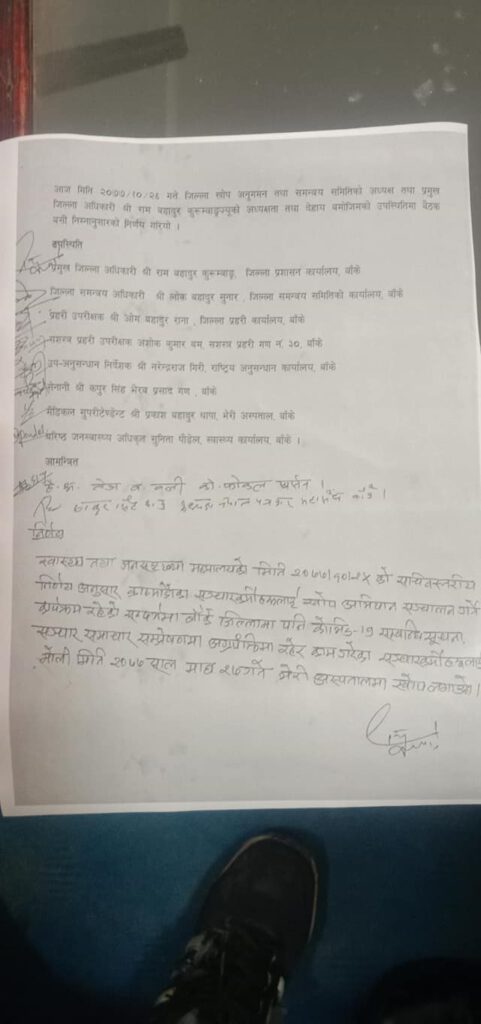 आज मिति २०७७/१०/२६ गते जिल्ला खोप अनुगमन तथा समन्वय समितिको अध्यक्ष तथा प्रमुख
जिल्ला अधिकारी श्री राम बहादुर कुरुम्वाङ्ज्यूको अध्यक्षता तथा देहाय बमोजिमको उपस्थितिमा बैठक
बसी निम्नानुसारको निर्णय गरियो ।
उपस्थिति
प्रमुख जिल्ला अधिकारी श्री राम बहादुर कुरुम्वाङ्ग, जिल्ला प्रशासन कार्यालय, बाँके
जिल्ला समन्वय अधिकारी श्री लोक बहादुर सुनार , जिल्ला समन्वय समितिको कार्यालय, बाँके
प्रहरी उपरीक्षक श्री ओम बहादुर राना , जिल्ला प्रहरी कार्यालय, बाँके
सशस्त्र प्रहरी उपरीक्षक अशोक कुमार बम, सशस्त्र प्रहरी गण नं. ३०, बाँके
उप-अनुसन्धान निर्देशक श्री नरेन्द्रराज गिरी, राष्ट्रिय अनुसन्धान कार्यालय, बाँके
सेनानी श्री कपुर सिंह भैरब प्रसाद गण , बाँके
मेडिकल सुपरीटेण्डेन्ट श्री प्रकाश बहादुर थापा, भेरी अस्पताल, बाँके
वरिष्ठ जनस्वास्थ्य अधिकृत सुनिता पौडेल, स्वास्थ्य कार्यालय, बाँके ।
आमन्त्रित
फोकल पर्सन ।
ठाकुर सिंह थारु अध्यक्ष नेपाल पत्रकार महासंघ बाँके ।
निर्णय
स्वास्थ्य तथा जनसङ्ख्या मन्त्रालयको मिति २०७७/१०/२४ को सचिवस्तरीय
निर्णय अनुसार सञ्चारकर्मीहरुलाई खोप अभियान सञ्चालन गर्ने
कार्यक्रम रहेको सन्दर्भमा बाँके जिल्लामा पनि कोभिड-१९ सम्बन्धि सूचना,
सञ्चार समाचार सम्प्रेषणमा अग्रपंक्तिमा रहेर काम गरेका सञ्चारकर्मीहरुलाई
भोली मिति २०७७ साल माघ २७ गते भेरी अस्पतालमा खोप लगाउने ।